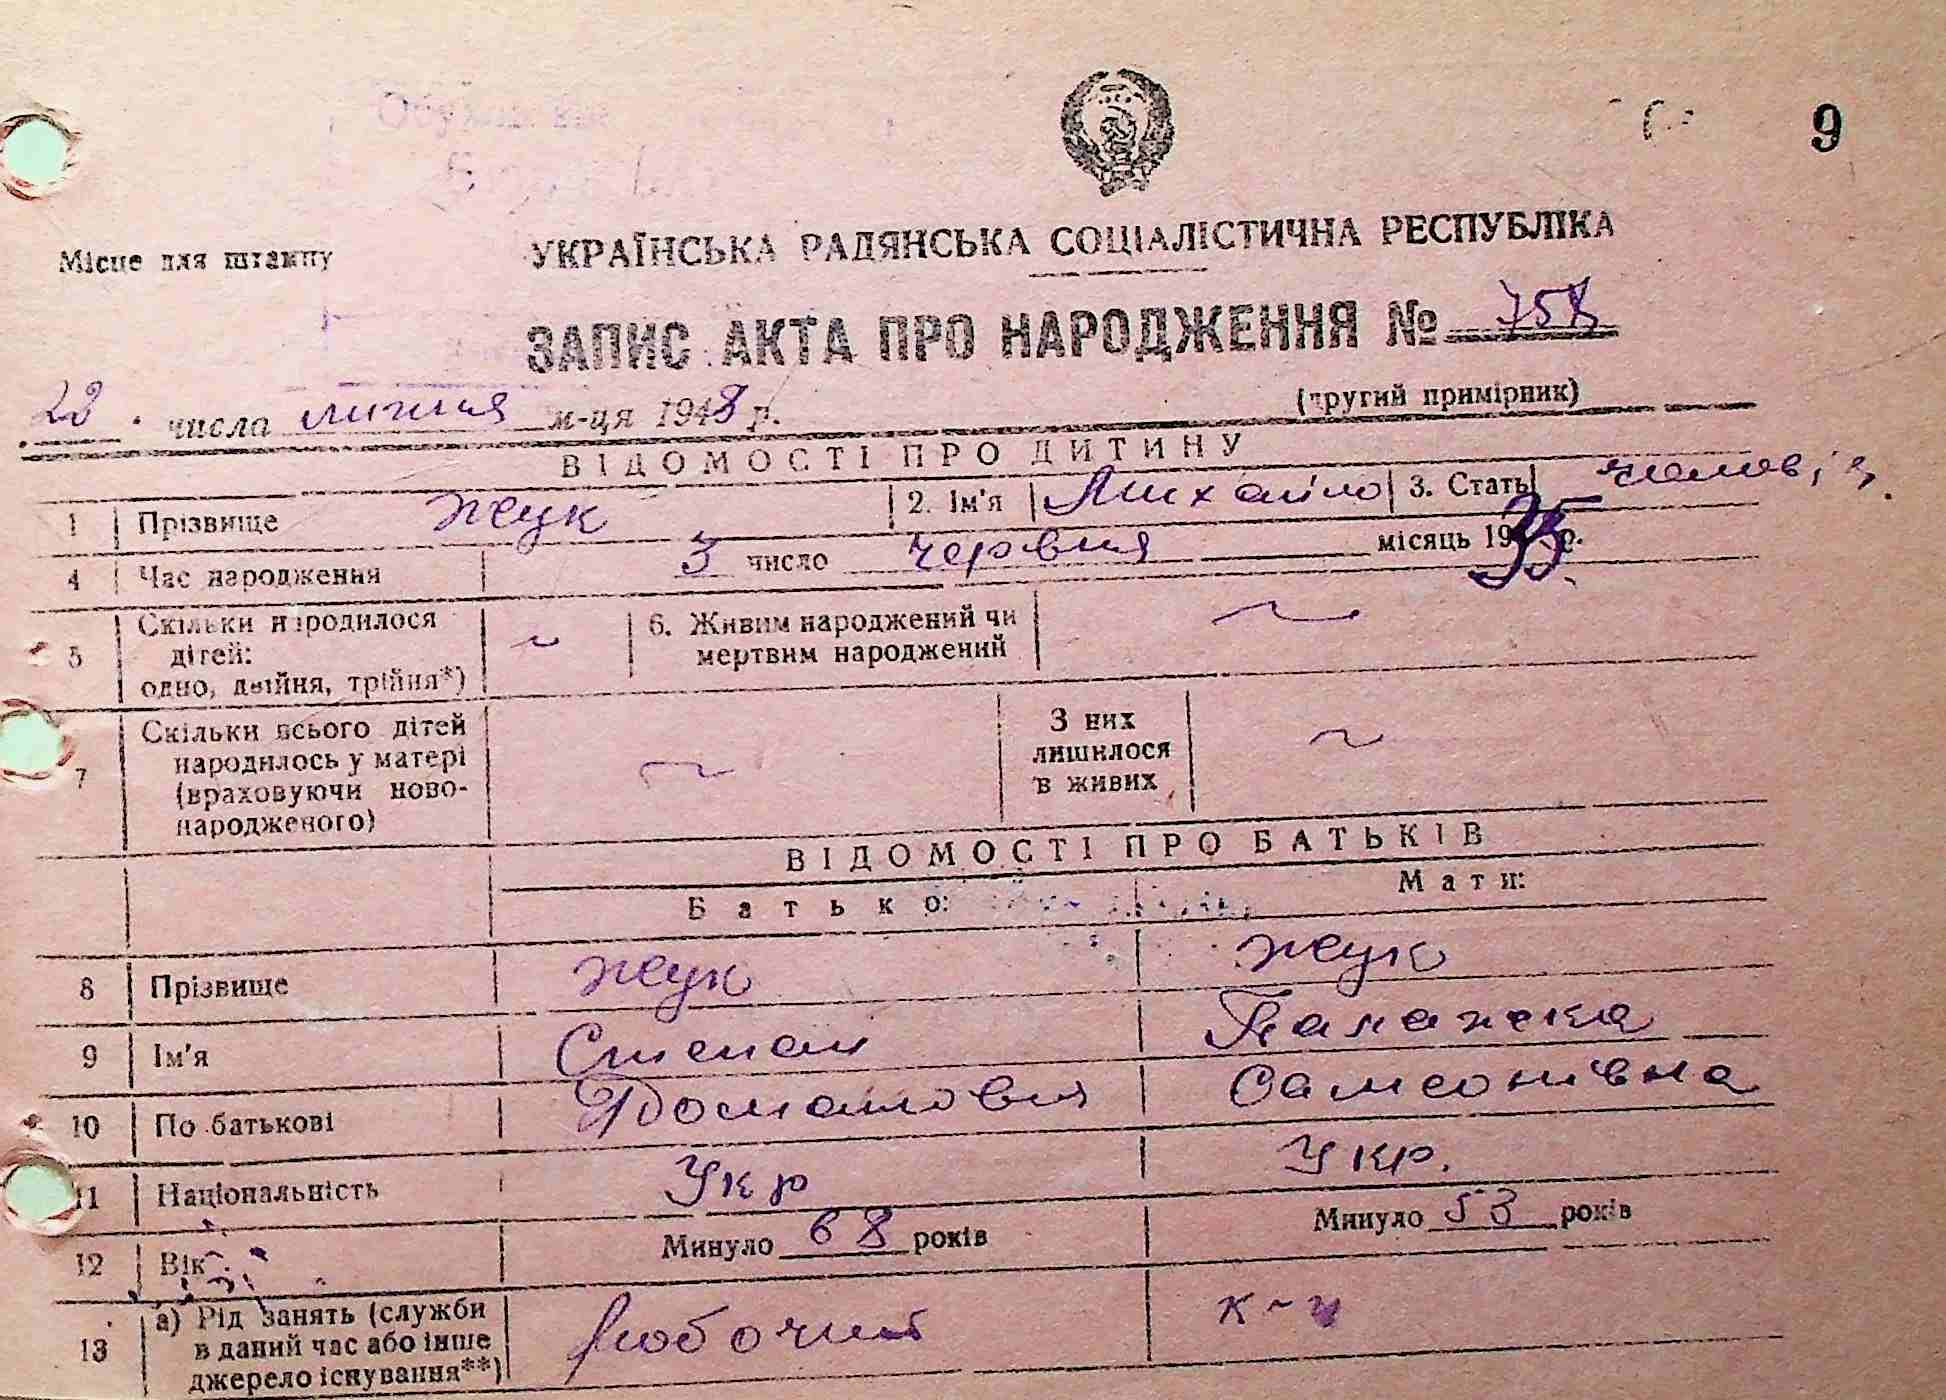 9
Місце для штампу
УКРАЇНСЬКА РАДЯНСЬКА СОЦІАЛІСТИЧНА РЕСПУБЛІКА
ЗАПИС АКТА ПРО НАРОДЖЕННЯ № 758
(другий примірник)
числа липня м-ця 1948 р.
ВІДОМОСТІ ПРО ДИТИНУ
1 Прізвище Жук 2. Ім'я Михайло 3. Стать чоловіч.
4 Час народження 3 число червня місяць 1935 р.
5 Скільки народилося дітей: одно, двійня, трійня*) ~ 6. Живим народжений чи мертвим народжений ~
7 Скільки всього дітей народилось у матері (враховуючи ново-народженого) ~ З них лишилося в живих ~
ВІДОМОСТІ ПРО БАТЬКІВ
Батько: Мати:
8 Прізвище Жук Жук
9 Ім'я Степан Палажка
10 По батькові Самсонівна
11 Національність Укр Укр.
12 Вік Минуло 68 років Минуло 53 років
13 а) Рід занять (служби в даний час або інше джерело існування**) робочий к-ч